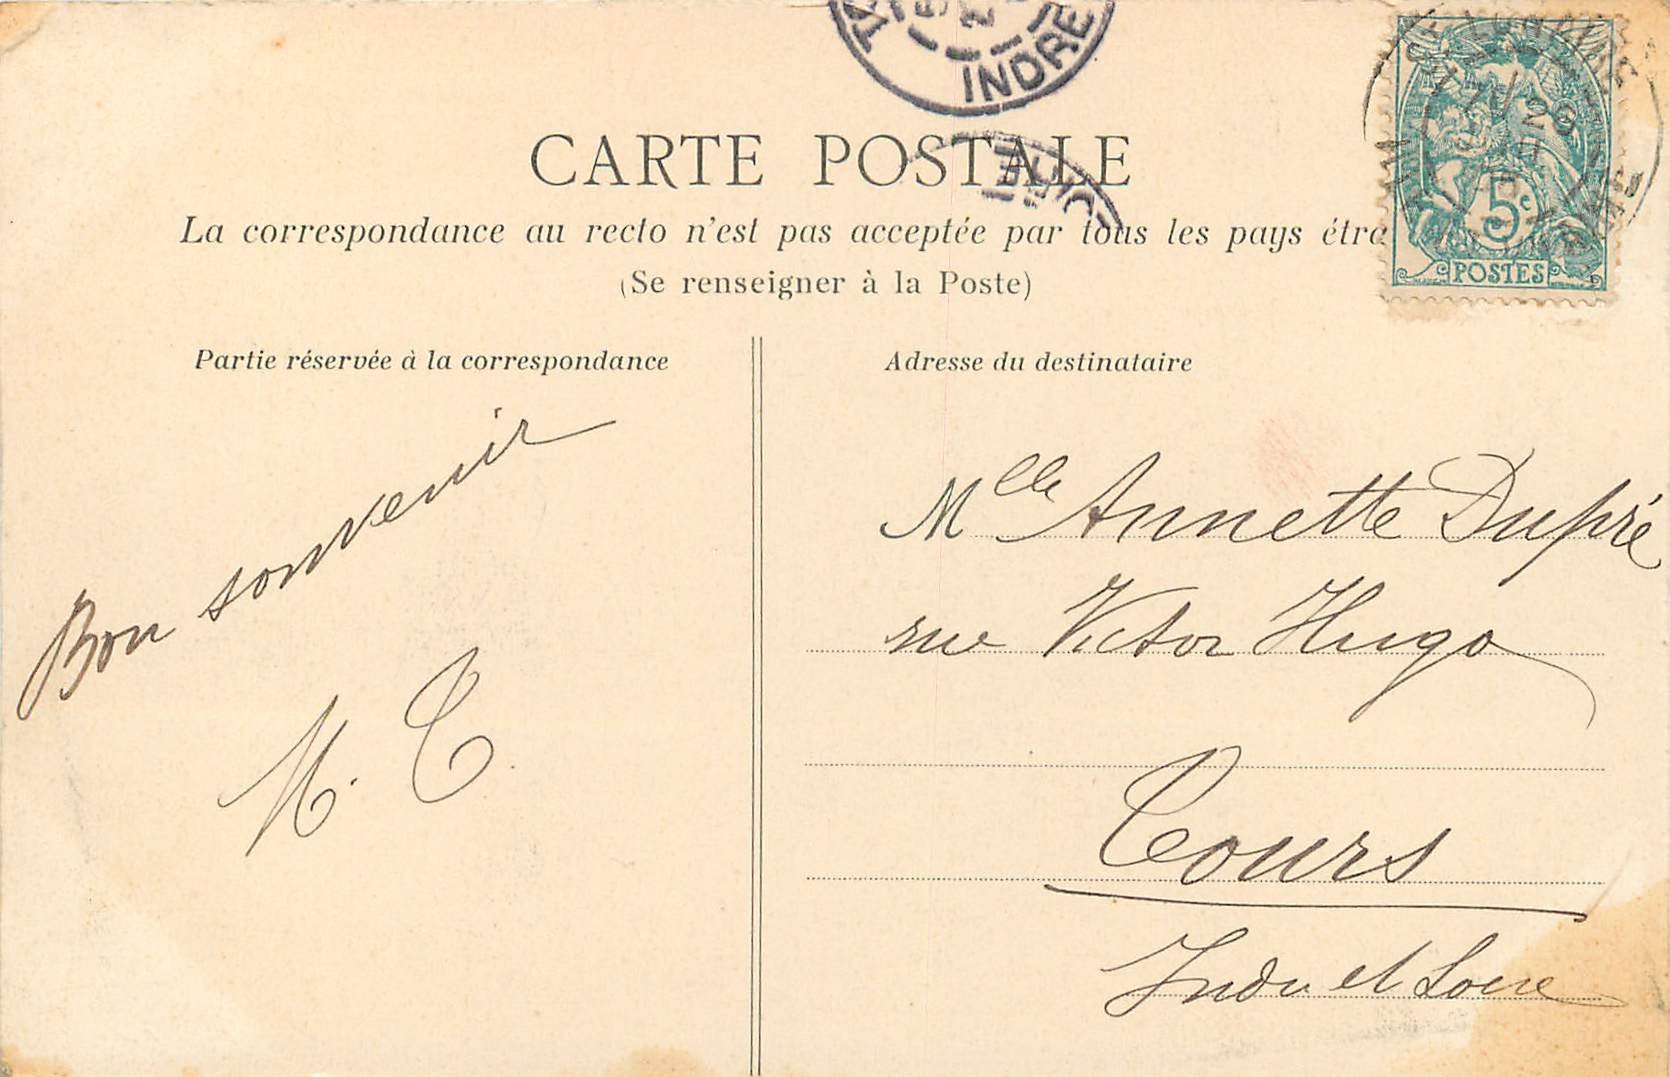 INDRE
CARTE POSTALE
La correspondance au recto n'est pas acceptée par tous les pays étra
(Se renseigner à la Poste)
5c
POSTES
Partie réservée à la correspondance
Bon souvenir
M. T.
Adresse du destinataire
Mlle Annette Dupré
rue Victor Hugo
Tours
Indre et Loire